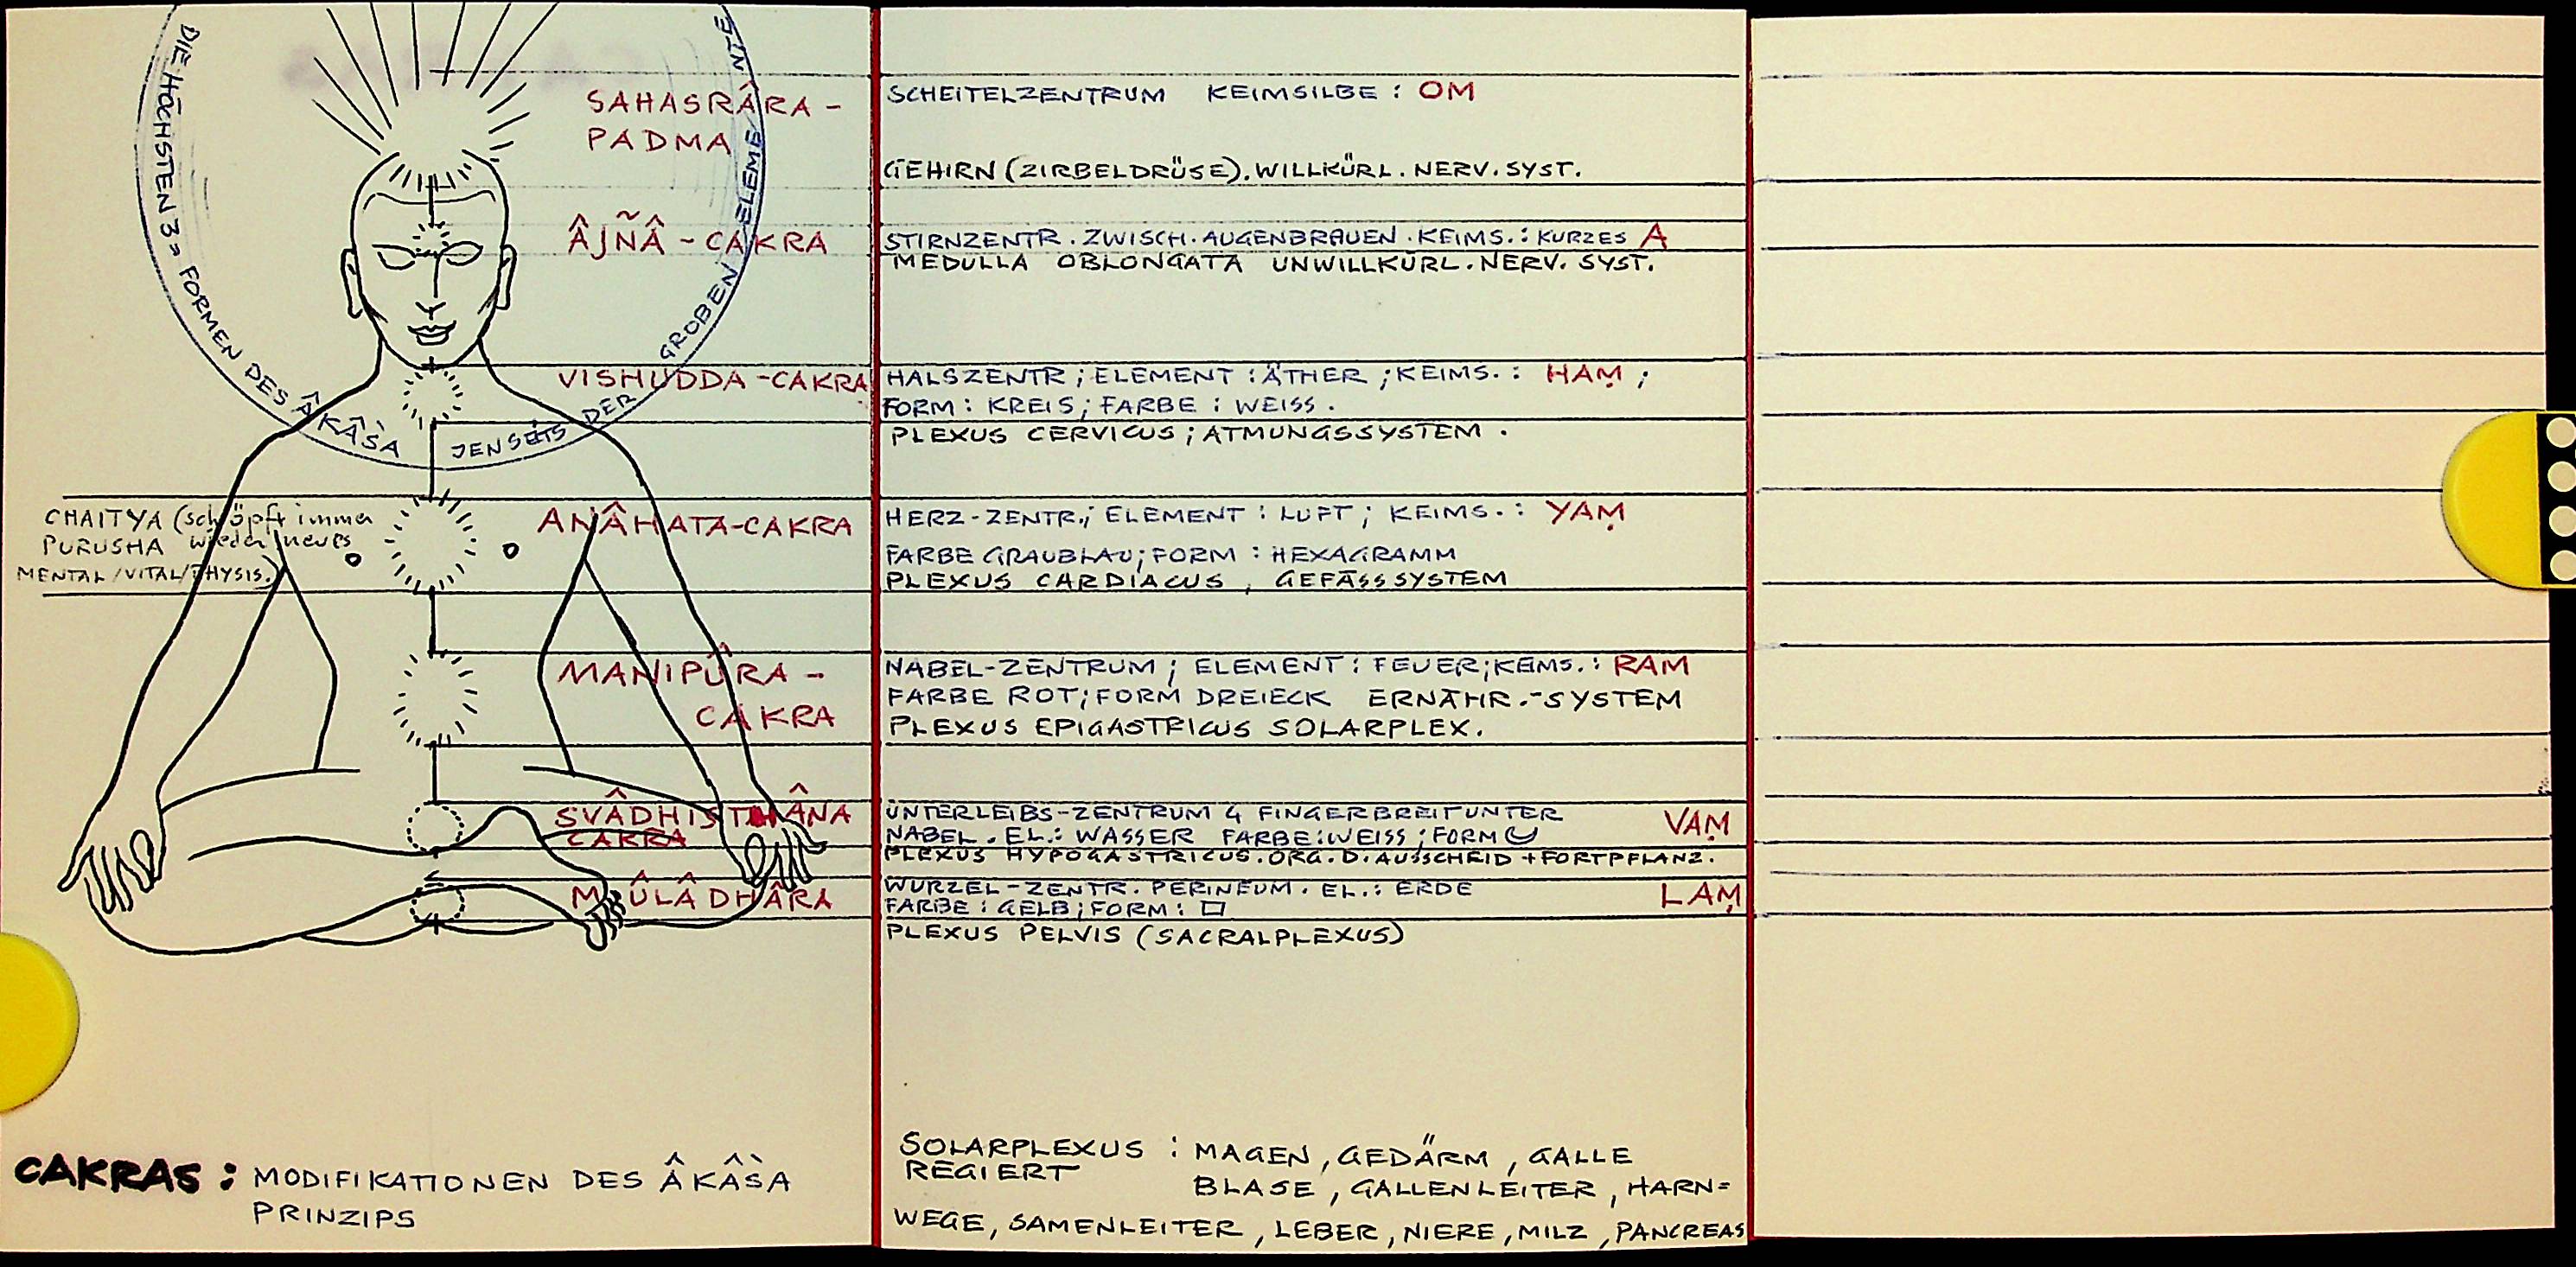 DIE HÖCHSTEN 3 = FORMEN DES ÂKÂŚA JENSEITS DER GROBEN ELEMENTE
SAHASRÂRA -
PADMA
SCHEITELZENTRUM KEIMSILBE : OM
GEHIRN (ZIRBELDRÜSE). WILLKÜRL. NERV. SYST.
ÂJÑÂ - CAKRA
STIRNZENTR. ZWISCH. AUGENBRAUEN. KEIMS. : KURZES A
MEDULLA OBLONGATA UNWILLKÜRL. NERV. SYST.
VISHUDDA - CAKRA
HALSZENTR ; ELEMENT : ÄTHER ; KEIMS. : HAṂ ;
FORM : KREIS ; FARBE : WEISS .
PLEXUS CERVICUS ; ATMUNGSSYSTEM .
CHAITYA (schöpft immer
PURUSHA wieder neues
MENTAL/VITAL/PHYSIS.)
ANÂHATA-CAKRA
HERZ-ZENTR.; ELEMENT : LUFT ; KEIMS. : YAṂ
FARBE GRAUBLAU; FORM : HEXAGRAMM
PLEXUS CARDIACUS , GEFÄSSSYSTEM
MANIPÛRA -
CAKRA
NABEL-ZENTRUM ; ELEMENT : FEUER; KEIMS. : RAM
FARBE ROT; FORM DREIECK ERNÄHR.-SYSTEM
PLEXUS EPIGASTRICUS SOLARPLEX.
SVÂDHISTHÂNA
CAKRA
UNTERLEIBS-ZENTRUM 4 FINGERBREIT UNTER
NABEL. EL.: WASSER FARBE: WEISS ; FORM VAṂ
PLEXUS HYPOGASTRICUS. ORG. D. AUSSCHEID + FORTPFLANZ.
MÛLÂDHÂRA
WURZEL-ZENTR. PERINEUM. EL.: ERDE
FARBE : GELB; FORM : □ LAṂ
PLEXUS PELVIS (SACRALPLEXUS)
CAKRAS : MODIFIKATIONEN DES ÂKÂŚA
PRINZIPS
SOLARPLEXUS : MAGEN, GEDÄRM, GALLE
REGIERT BLASE, GALLENLEITER, HARN=
WEGE, SAMENLEITER, LEBER, NIERE, MILZ, PANCREAS